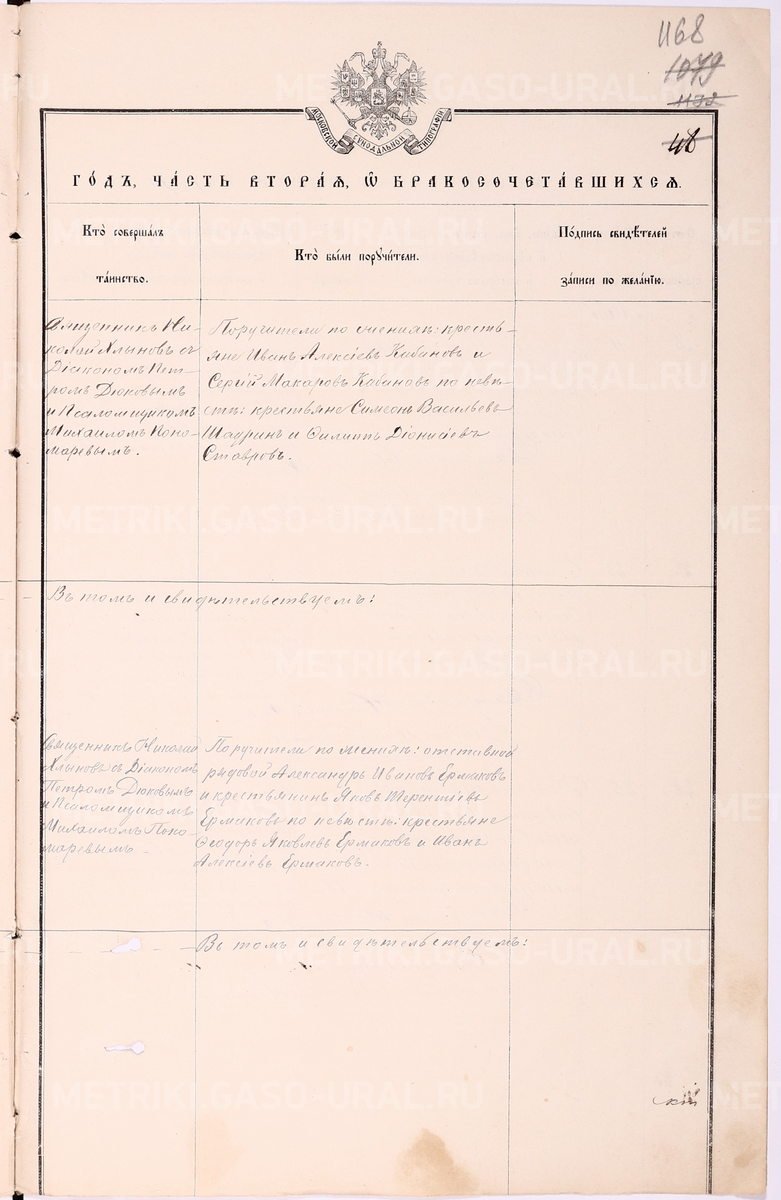 1168
1079
1132
48
МОСКОВСКОЙ СѴНОДАЛЬНОЙ ТИПОГРАФІИ
ГО́ДЪ, ЧА́СТЬ ВТОРА́Ѧ, Ѽ БРАКОСОЧЕТА́ВШИХСѦ.
Кто̀ совершáлъ
тáинство.
Кто̀ бы́ли порꙋчи́тели.
По́дпись свидѣ́телей
зáписи по желáнїю.
Священникъ Ни-
колай Хлыновъ съ
Діакономъ Пет-
ромъ Дюковымъ
и Псаломщикомъ
Михаиломъ Поно-
маревымъ.
Поручители по женихѣ: кресть-
яне Иванъ Алексіевъ Кабановъ и
Сергій Макаровъ Кабановъ по невѣ-
стѣ: крестьяне Симеонъ Васильевъ
Шадринъ и Филиппъ Діонисіевъ
Ставровъ.
Въ томъ и свидѣтельствуемъ:
Священникъ Николай
Хлыновъ съ Діакономъ
Петромъ Дюковымъ
и Псаломщикомъ
Михаиломъ Поно-
маревымъ.
Поручители по женихѣ: отставной
рядовой Александръ Ивановъ Ермаковъ
и крестьянинъ Яковъ Терентіевъ
Ермаковъ по невѣстѣ: крестьяне
Ѳеодоръ Яковлевъ Ермаковъ и Иванъ
Алексіевъ Ермаковъ.
Въ томъ и свидѣтельствуемъ:
METRIKI.GASO-URAL.RU